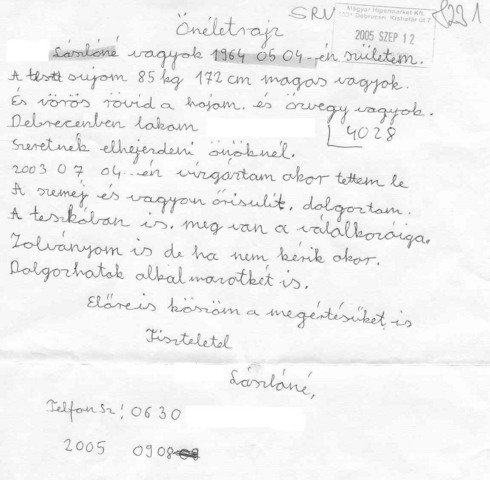 SRV
8221
Magyar Hipermarket Kft.
4031 Debrecen, Kishatár út 7.
2005 SZEP 12
Önéletrajz
Lászlóné vagyok 1964 05 04..én születem.
A testt sujom 85 kg 172 cm magas vagyok.
És vörös rövid a hajam. és özvegy vagyok.
Debrecenben lakam
4028
Szeretnék elhejezdeni önöknél.
2003 07 04..én vizgáztam akor tettem le
A szemej és vagyon őrisulit. dolgoztam.
A teszkóban is. meg van a válalkozáiga.
Zolványom is de ha nem kérik akor.
Dolgozhatok alkalmazotkét is.
Előreis köszöm a megértésüket is
Tiszteletel
Lászlóné,
Telfonsz! 06 30
2005 0908